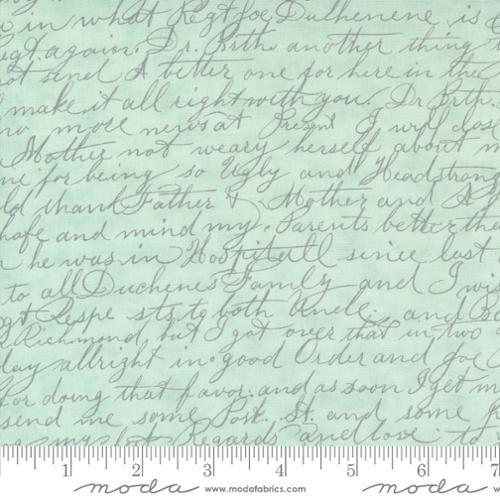 in what Regt Joe Duchenene is
Regt again. Dr. Brth. another thing
not send A better one for here in the
make it all right with you. Dr Brther
no more news at Present I will close
Mother not weary herself about m
me for being so Ugly and Headstrong
ld thank Father & Mother and A
hafe and mind my Parents better tha
he was in Hospitall since last
to all Duchenes Family and I wis
gt Respe sts to both Uncle. and
Richmond but I got over that in two
day allright in good Order and Joe
For doing that favor. and as soon I get m
send me some Post. St. and some
my best Regards and love to
1 2 3 4 5 6 7
moda www.modafabrics.com moda